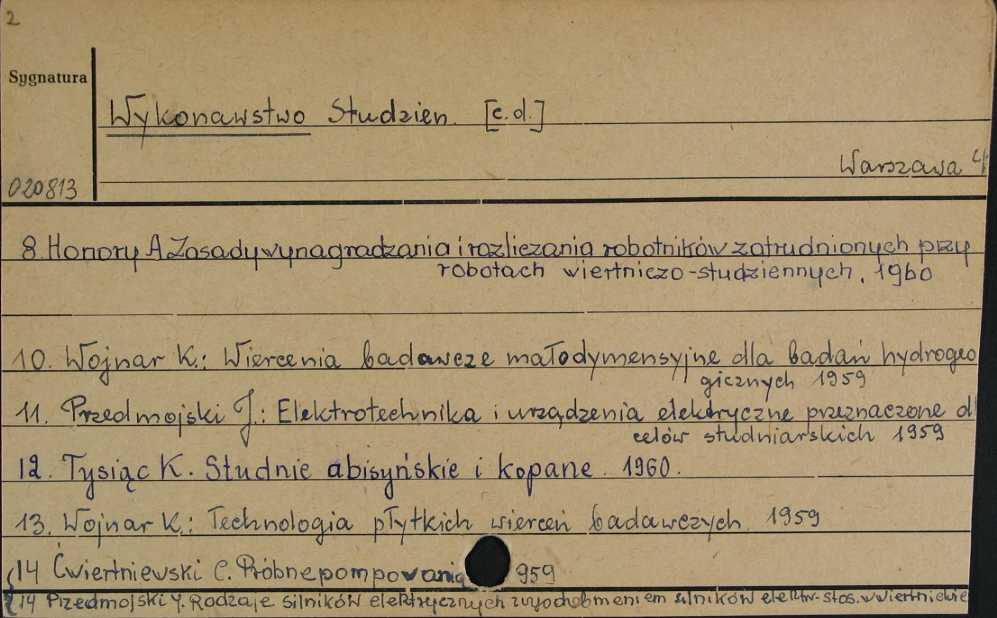 2
Sygnatura
Wykonawstwo Studzien. [c.d.]
Warszawa 4
020813
8. Honory A Zasady wynagradzania i rozliczania robotników zatrudnionych przy
robotach wiertniczo-studziennych. 1960
10. Wojnar K.: Wiercenia badawcze małodymensyjne dla badań hydrogeo
gicznych 1959
11. Przedmojski J.: Elektrotechnika i urządzenia elektryczne przeznaczone d
celów studniarskich 1959
12. Tysiąc K. Studnie abisyńskie i kopane. 1960.
13. Wojnar K.: Technologia płytkich wierceń badawczych 1959
14 Ćwiertniewski C. Próbne pompowania 959
14 Przedmojski J. Rodzaje silników elektrycznych z silników elektr. stos. w wiertnictwie